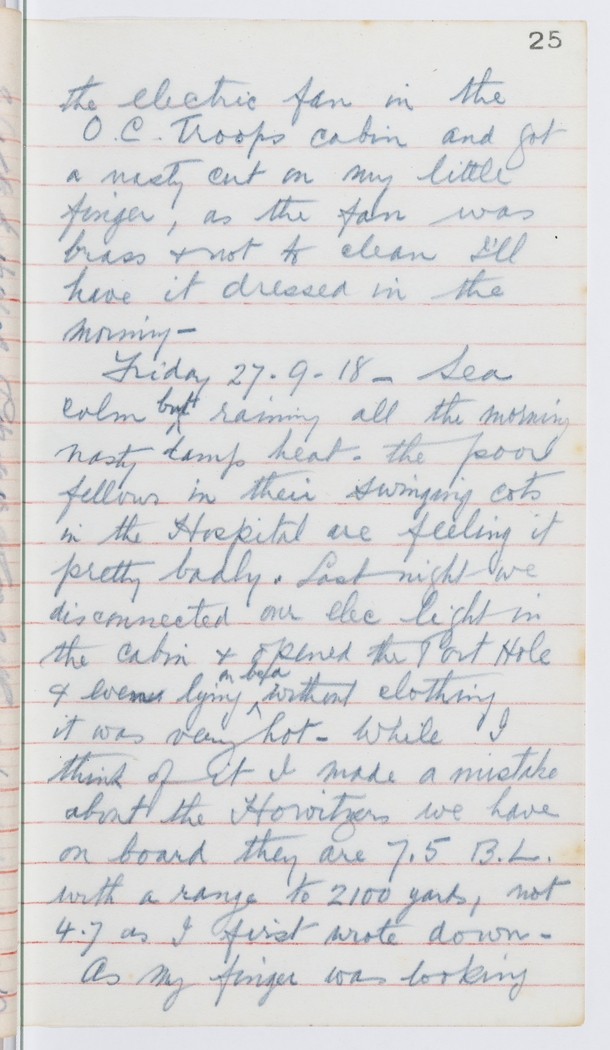 25
the electric fan in the
O.C. Troops cabin and got
a nasty cut on my little
finger, as the fan was
brass & not to clean I'll
have it dressed in the
morning -
Friday 27-9-18 - Sea
calm but raining all the morning
nasty damp heat - the poor
fellows in their swinging cots
in the Hospital are feeling it
pretty badly. Last night we
disconnected our elec light in
the cabin & opened the Port Hole
& even lying on bed without clothing
it was very hot - While I
think of it I made a mistake
about the Howitzers we have
on board they are 7.5 B.L.
with a range to 2100 yards, not
4.7 as I first wrote down -
As my finger was looking